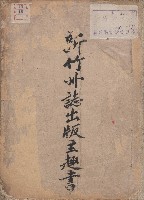 新竹州誌出版主趣書